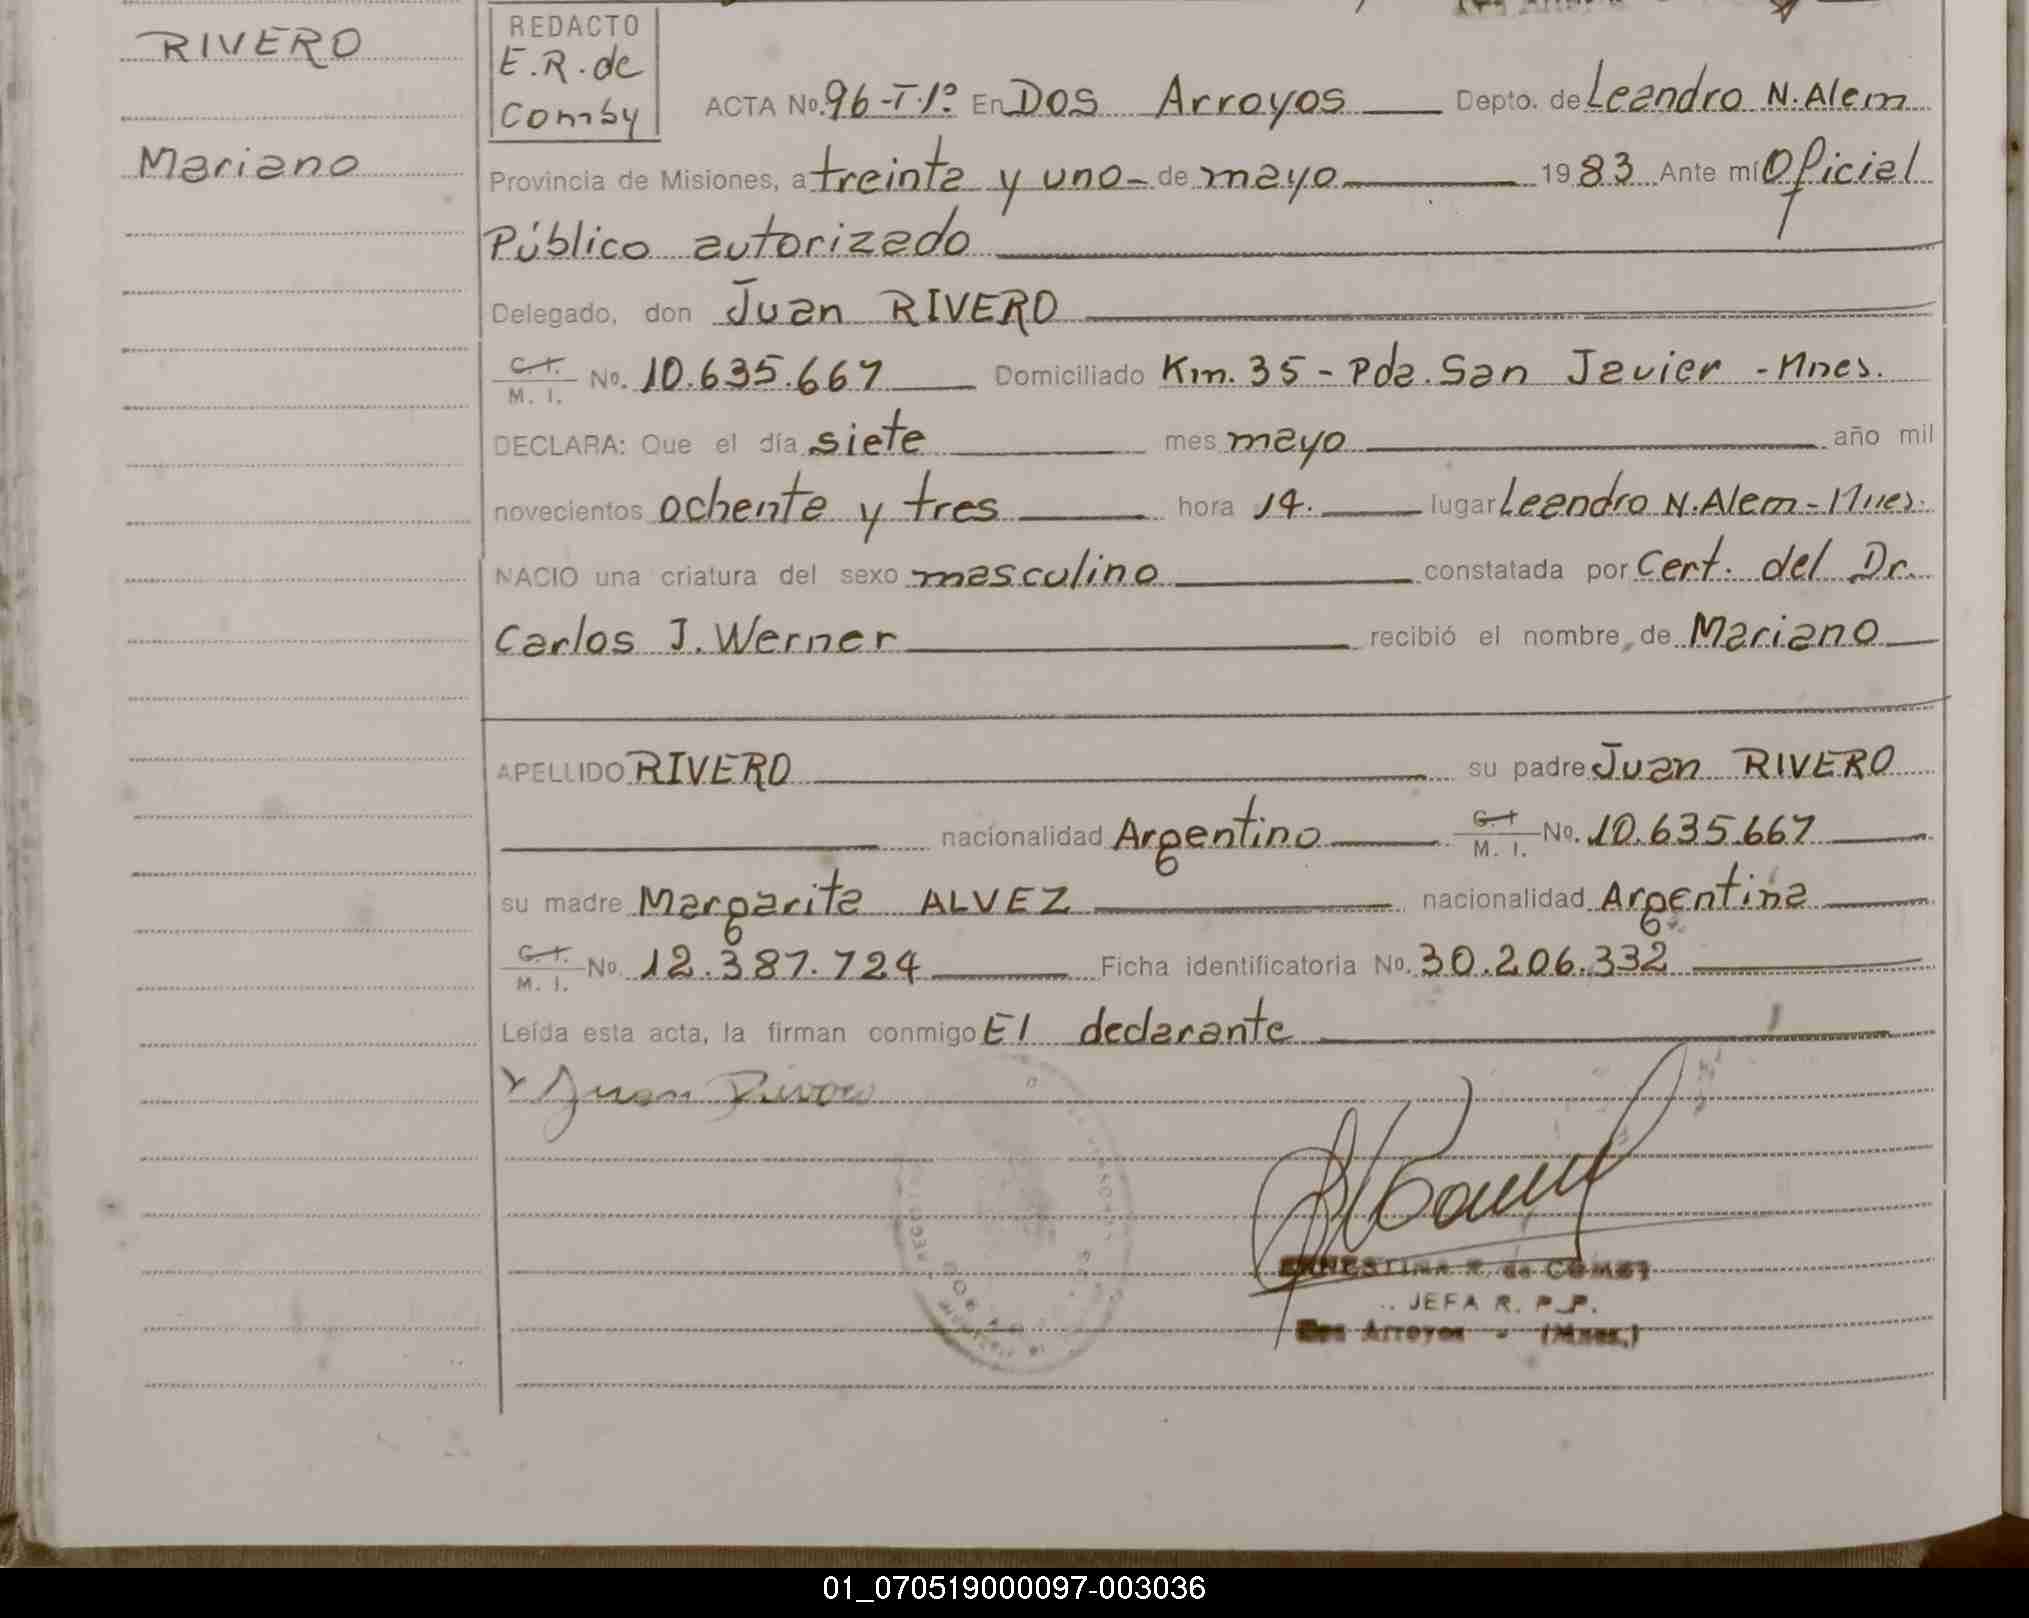 RIVERO
Mariano
REDACTO
E.R. de
Comby
ACTA No. 96-T.1º En Dos Arroyos Depto. de Leandro N. Alem
Provincia de Misiones, a treinta y uno de mayo 1983 Ante mí Oficial
Público autorizado
Delegado, don Juan RIVERO
C.I. M. I. No. 10.635.667 Domiciliado Km. 35 - Pda. San Javier - Mnes.
DECLARA: Que el día siete mes mayo año mil
novecientos ochenta y tres hora 14. lugar Leandro N. Alem - Mnes.
NACIO una criatura del sexo masculino constatada por Cert. del Dr.
Carlos J. Werner recibió el nombre de Mariano
APELLIDO RIVERO su padre Juan RIVERO
nacionalidad Argentino C.I. M. I. No. 10.635.667
su madre Margarita ALVEZ nacionalidad Argentina
C.I. M. I. No. 12.387.724 Ficha identificatoria No. 30.206.332
Leída esta acta, la firman conmigo El declarante
Juan Rivero
ERNESTINA R. de COMBY
JEFA R. P. P.
Dos Arroyos - (Mnes.)
01_070519000097-003036